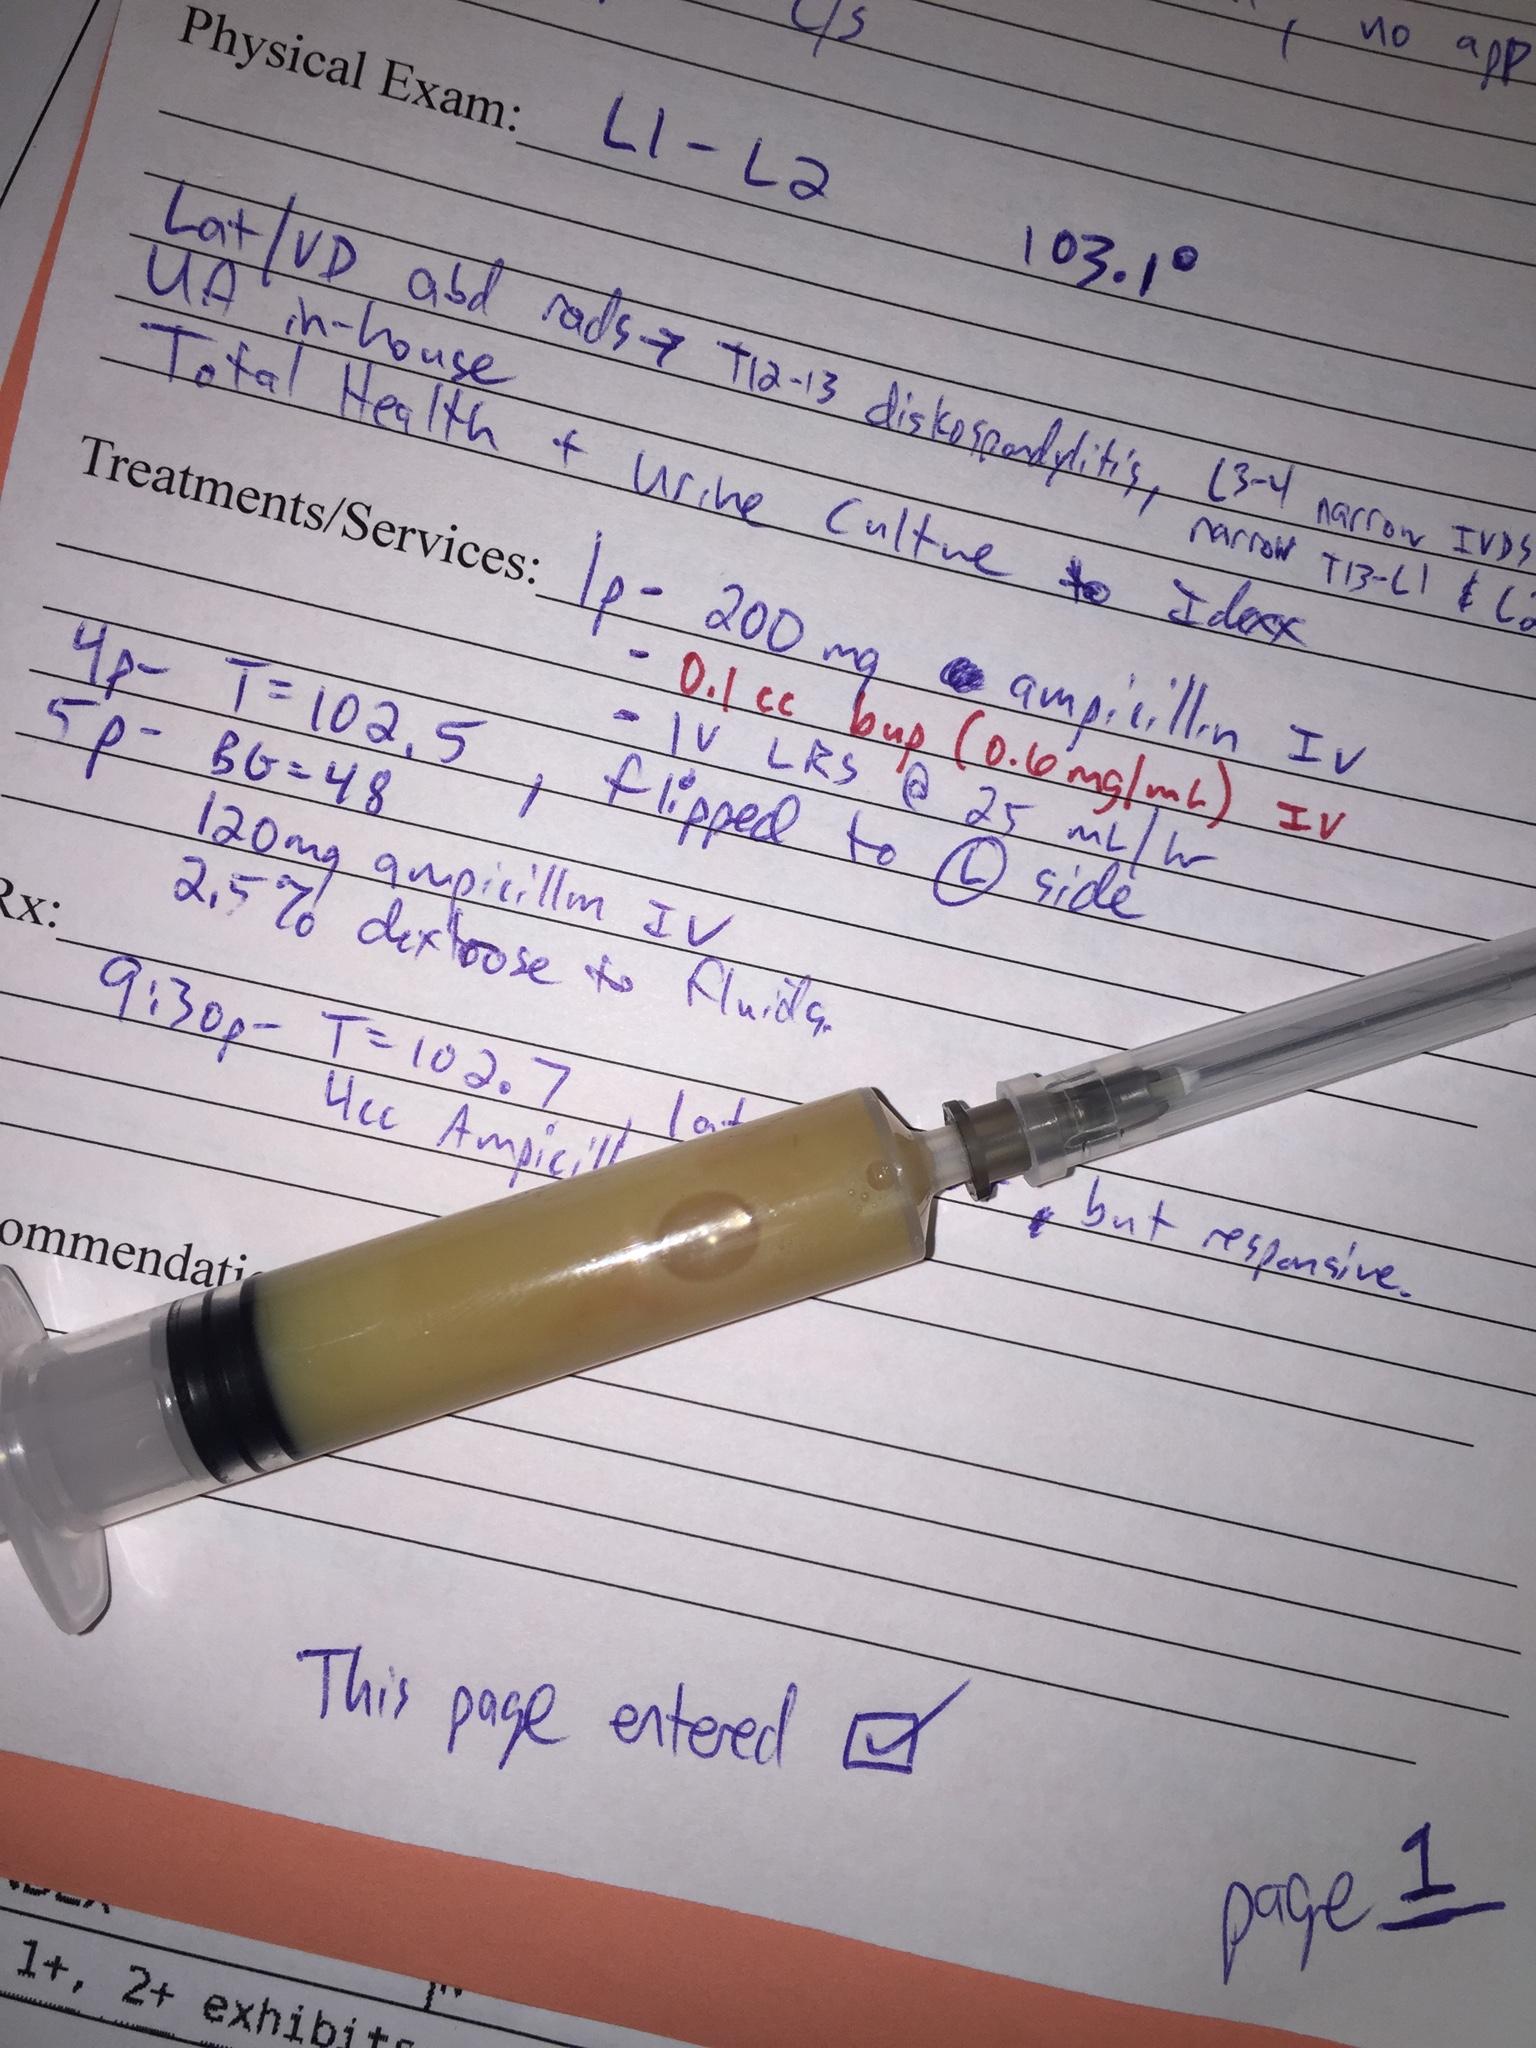 c/s
, no app
Physical Exam: L1-L2
103.1°
Lat/VD abd rads → T12-13 diskospondylitis, L3-4 narrow IVDS
narrow T13-L1 & L2
UA in-house
Total Health + Urine Culture to Idexx
Treatments/Services: 1p- 200 mg ampicillin IV
- 0.1 cc bup (0.6mg/mL) IV
- IV LRS @ 25 mL/hr
4p- T=102.5, flipped to L side
5p- BG=48
120mg ampicillin IV
2.5% dextrose to fluids.
Rx:
9:30p- T=102.7, lat
, but responsive.
4cc Ampicill
ommendatio
This page entered ☑
page 1
NDEX
1+, 2+ exhibits